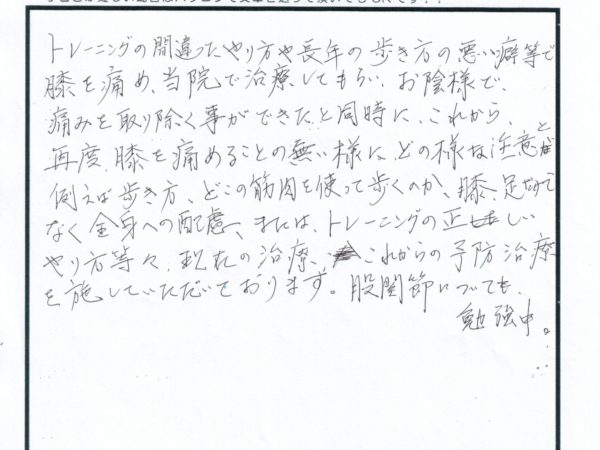 トレーニングの間違ったやり方や長年の歩き方の悪い癖等で
膝を痛め、当院で治療してもらい、お陰様で、
痛みを取り除く事ができたと同時に、これから、
再度、膝を痛めることの無い様に、どの様な注意と
例えば歩き方、どこの筋肉を使って歩くのか、膝、足だけで
なく全身への配慮、または、トレーニングの正しい
やり方等々、現在の治療、これからの予防治療
を施していただいております。股関節についても、
勉強中。